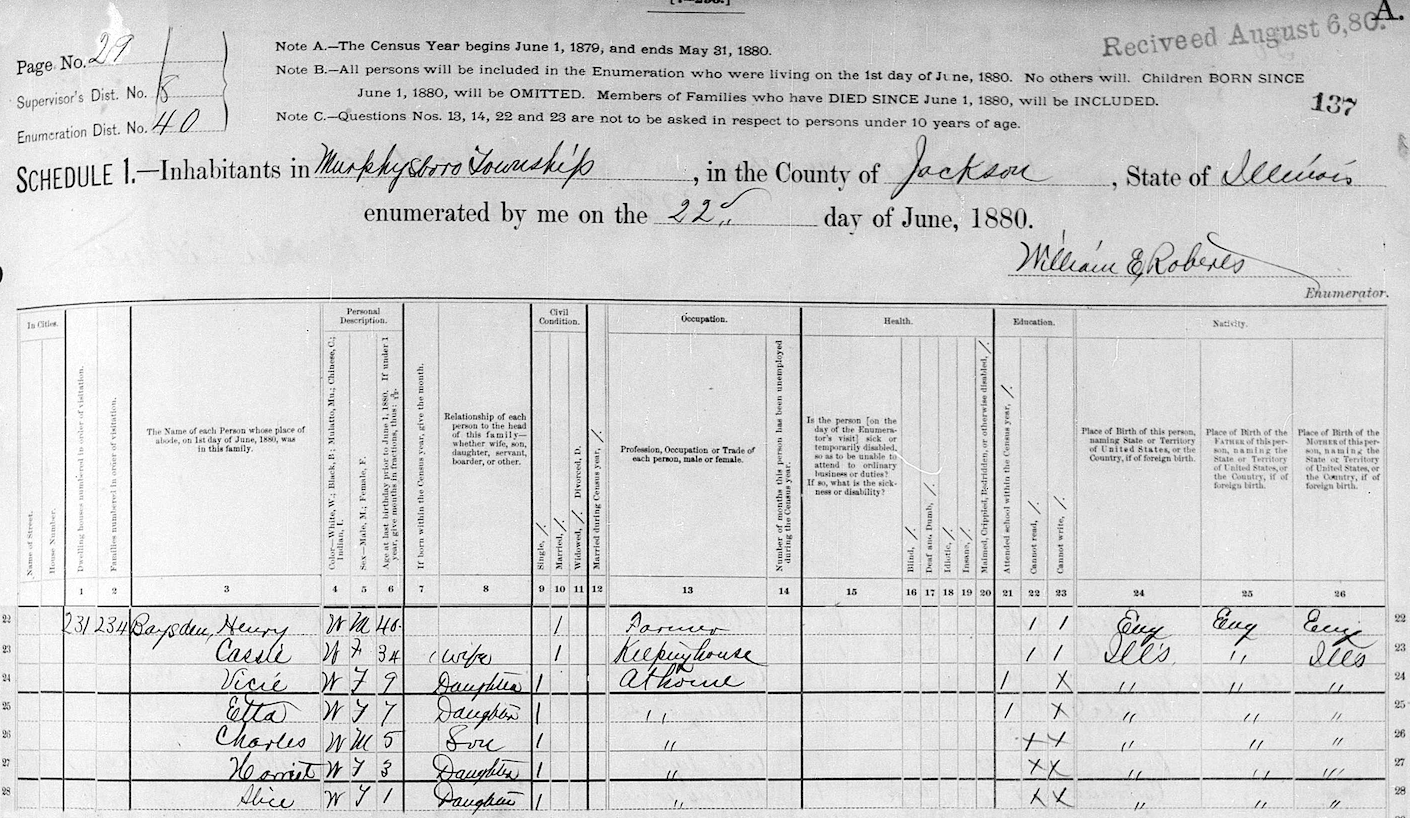 [7-296.]
A.
Reciveed August 6, 80.
Page No. 29
Supervisor's Dist. No. 8
Enumeration Dist. No. 40
Note A.—The Census Year begins June 1, 1879, and ends May 31, 1880.
Note B.—All persons will be included in the Enumeration who were living on the 1st day of June, 1880. No others will. Children BORN SINCE
June 1, 1880, will be OMITTED. Members of Families who have DIED SINCE June 1, 1880, will be INCLUDED.
Note C.—Questions Nos. 13, 14, 22 and 23 are not to be asked in respect to persons under 10 years of age.
137
SCHEDULE 1.—Inhabitants in Murphysboro Township, in the County of Jackson, State of Illinois
enumerated by me on the 22d day of June, 1880.
William E. Roberts
Enumerator.
In Cities.
Name of Street.
House Number.
Dwelling houses numbered in order of visitation.
Families numbered in order of visitation.
The Name of each Person whose place of
abode, on 1st day of June, 1880, was
in this family.
Personal
Description.
Color—White, W.; Black, B.; Mulatto, Mu.; Chinese, C.;
Indian, I.
Sex—Male, M.; Female, F.
Age at last birthday prior to June 1, 1880. If under 1
year, give months in fractions, thus: 3/12.
If born within the Census year, give the month.
Relationship of each
person to the head
of this family—
whether wife, son,
daughter, servant,
boarder, or other.
Civil
Condition.
Single, /.
Married, /.
Widowed, /. Divorced, D.
Married during Census year, /.
Occupation.
Profession, Occupation or Trade of
each person, male or female.
Number of months this person has been unemployed
during the Census year.
Health.
Is the person [on the
day of the Enumera-
tor's visit] sick or
temporarily disabled,
so as to be unable to
attend to ordinary
business or duties?
If so, what is the sick-
ness or disability?
Blind, /.
Deaf and Dumb, /.
Idiotic, /.
Insane, /.
Maimed, Crippled, Bedridden, or otherwise disabled, /.
Education.
Attended school within the Census year, /.
Cannot read, /.
Cannot write, /.
Nativity.
Place of Birth of this person,
naming State or Territory
of United States, or the
Country, if of foreign birth.
Place of Birth of the
FATHER of this per-
son, naming the
State or Territory
of United States, or
the Country, if of
foreign birth.
Place of Birth of the
MOTHER of this per-
son, naming the
State or Territory
of United States, or
the Country, if of
foreign birth.
1 2 3 4 5 6 7 8 9 10 11 12 13 14 15 16 17 18 19 20 21 22 23 24 25 26
22 231 234 Baysden, Henry W M 40 / Farmer / / Eng Eng Eng 22
23 Cassie W F 34 wife / Keeping house / / Ills " Ills 23
24 Vicie W F 9 Daughter / At home / X " " " 24
25 Etta W F 7 Daughter / " / X " " " 25
26 Charles W M 5 Son / " X X " " " 26
27 Harriet W F 3 Daughter / " X X " " " 27
28 Alice W F 1 Daughter / " X X " " " 28